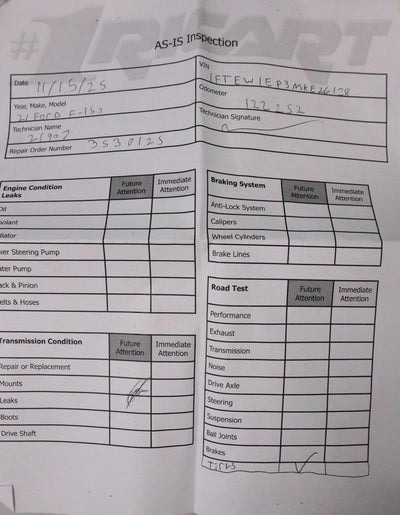 #1
AS-IS Inspection
Date 11/15/25
VIN
Year, Make, Model
21 Ford F-150
Odometer
122252
Technician Name
Technician Signature
Repair Order Number 3530125
Engine Condition
Leaks
Future Attention
Immediate Attention
Oil
er Steering Pump
ater Pump
ack & Pinion
elts & Hoses
Transmission Condition
Future Attention
Immediate Attention
Repair or Replacement
Mounts
Leaks
Boots
Drive Shaft
Braking System
Future Attention
Immediate Attention
Anti-Lock System
Calipers
Wheel Cylinders
Brake Lines
Road Test
Future Attention
Immediate Attention
Performance
Exhaust
Transmission
Noise
Drive Axle
Steering
Suspension
Ball Joints
Brakes
Tires ✓